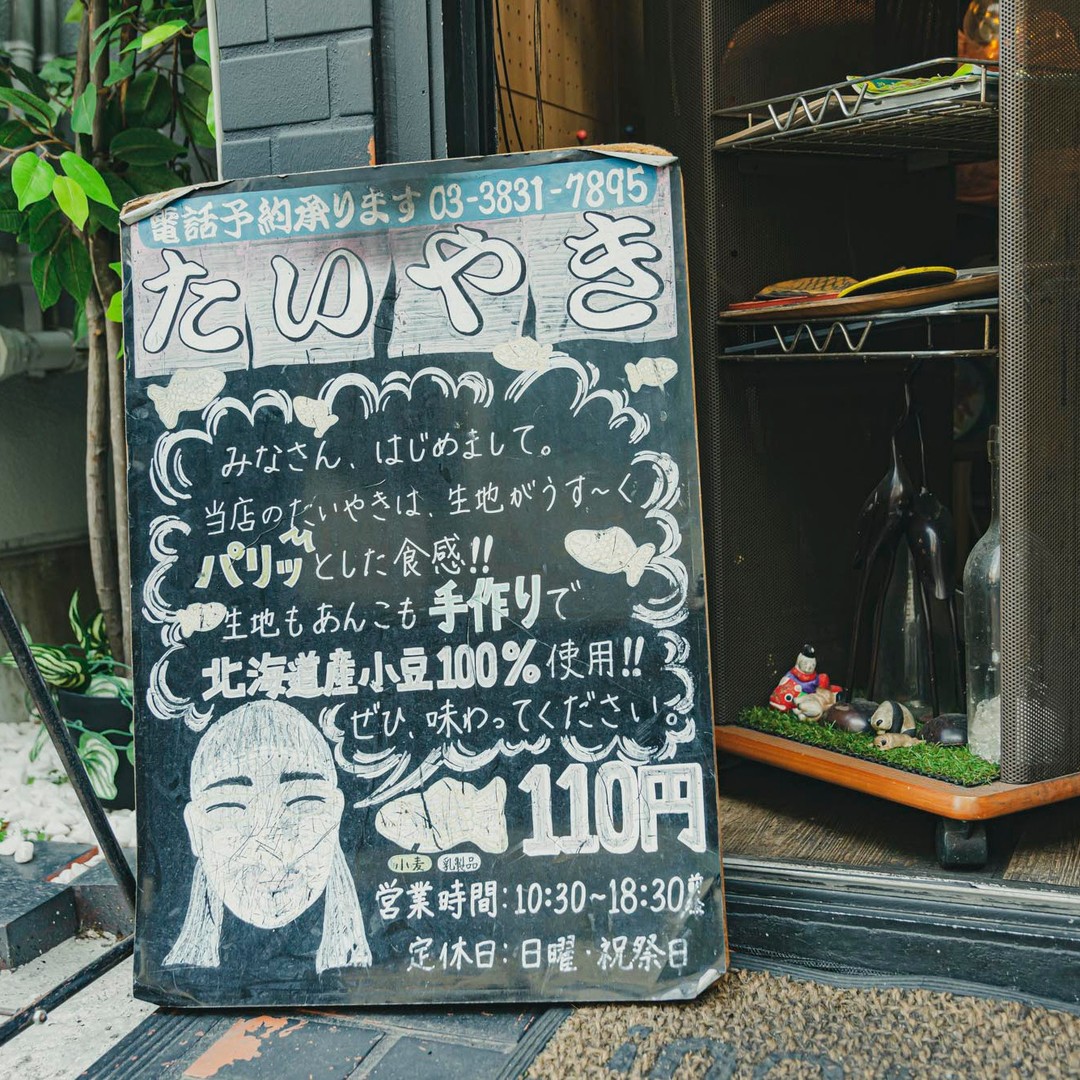 電話予約承ります 03-3831-7895
たいやき
みなさん、はじめまして。
当店のたいやきは、生地がうす〜く
パリッとした食感!!
生地もあんこも手作りで
北海道産小豆100%使用!!
ぜひ、味わってください。
110円
小麦 乳製品
営業時間:10:30~18:30
定休日:日曜・祝祭日